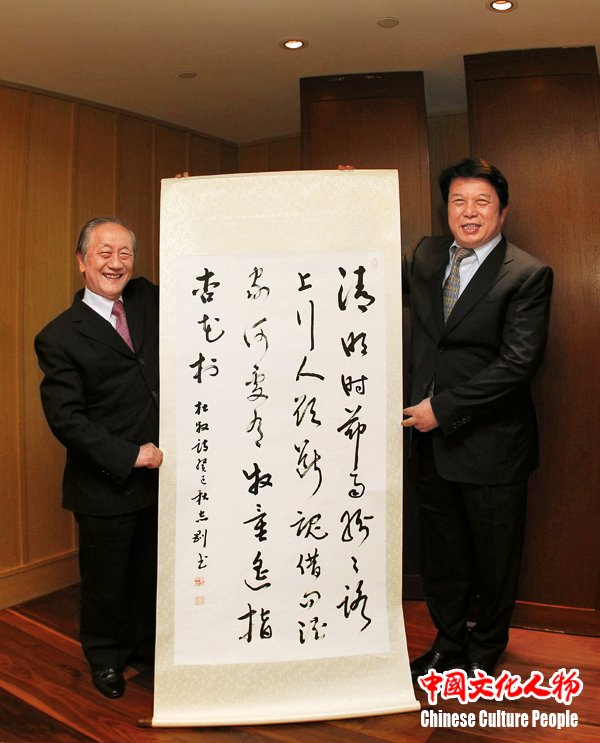 清明时节雨纷々路
上行人欲断魂借问酒
家何处有牧童遥指
杏花村
杜牧诗癸巳秋志刚书
中国文化人物
Chinese Culture People